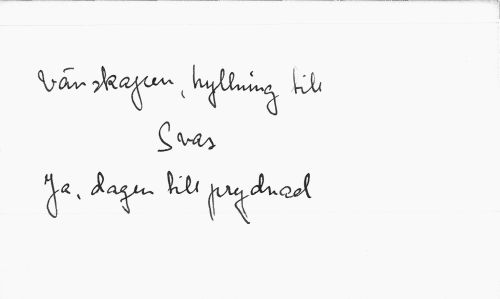 Vänskapen, hyllning till
Svas
Ja, dagen till prydnad